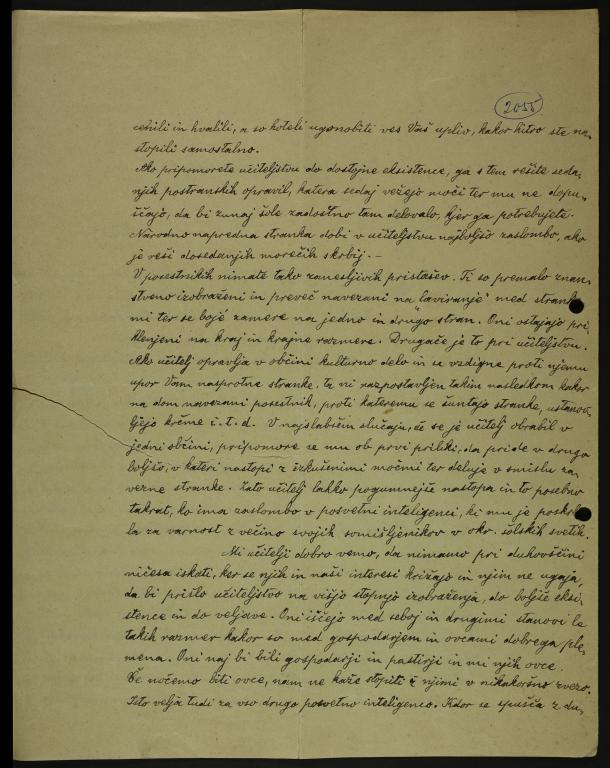 2055
cenili in hvalili, a so hoteli ugonobiti ves Vaš upliv, kakor hitro ste na-
stopili samostalno.
Ako pripomorete učiteljstvu do dostojne eksistence, ga s tem rešite seda-
njih postranskih opravil, katera sedaj vežejo moči ter mu ne dopu-
ščajo, da bi zunaj šole zadostno tam delovalo, kjer ga potrebujete.
Narodno napredna stranka dobi v učiteljstvu najboljšo zaslombo, ako
je reši dosedanjih morečih skrbij. –
V posestnikih nimate tako zanesljivih pristašev. Ti so premalo znan-
stveno izobraženi in preveč navezani na "laviranje" med stranka-
mi ter se boje zamere na jedno in drugo stran. Oni ostajajo pri-
klenjeni na kraj in krajne razmere. Drugače je to pri učiteljstvu.
Ako učitelj opravlja v občini kulturno delo in se vzdigne proti njemu
upor Vam nasprotne stranke, ta ni razpostavljen takim nasledkom kakor
na dom navezani posestnik, proti kateremu se šuntajo stranke, ustanov-
ljejo krčme i. t. d. V najslabšem slučaju, če se je učitelj obrabil v
jedni občini, pripomore se mu ob prvi priliki, da pride v drugo
boljšo, v kateri nastopi z izkušenimi močmi ter deluje v smislu za-
verzne stranke. Zato učitelj lahko pogumnejše nastopa in to posebno
takrat, ko ima zaslombo v posvetni inteligenci, ki mu je poskrbe-
la za varnost z večino svojih somišljenikov v okr. šolskih svetih.
Mi učitelji dobro vemo, da nimamo pri duhovščini
ničesa iskati, ker se njih in naši interesi križajo in njim ne ugaja,
da bi prišlo učiteljstvo na višjo stopnjo izobraženja, do boljše eksi-
stence in do veljave. Oni iščejo med seboj in drugimi stanovi le
takih razmer kakor so med gospodarjem in ovcami dobrega ple-
mena. Oni naj bi bili gospodarji in pastirji in mi njih ovce.
Če nočemo biti ovce, nam ne kaže stopiti ž njimi v nikakoršno zvezo.
Isto velja tudi za vso drugo posvetno inteligenco. Kdor se spušča z du-